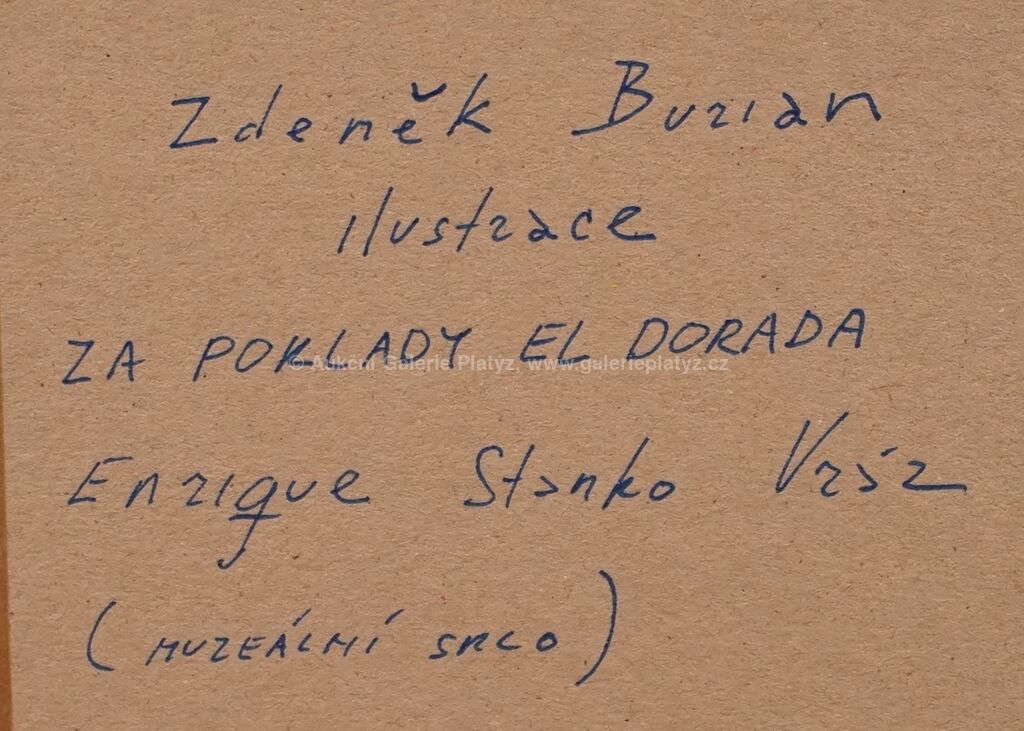 Zdeněk Burian
ilustrace
ZA POKLADY EL DORADA
© Aukční Galerie Platýz, www.galerieplatyz.cz
Enrique Stanko Vráz
(MUZEÁLNÍ SKLO)